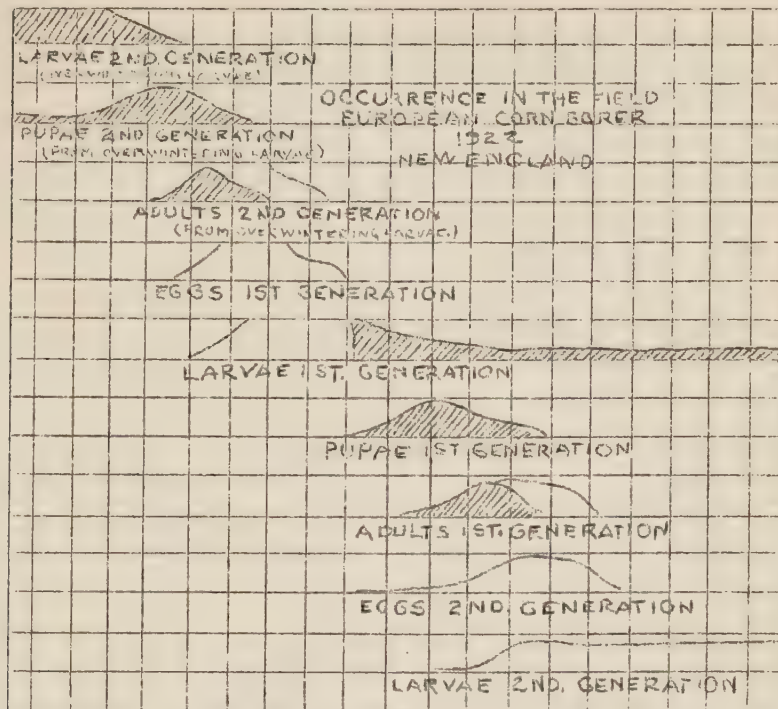 LARVAE 2ND. GENERATION
(OVERWINTERING LARVAE)
OCCURRENCE IN THE FIELD
EUROPEAN CORN BORER
1922
NEW ENGLAND
PUPAE 2ND GENERATION
(FROM OVERWINTERING LARVAE)
ADULTS 2ND GENERATION
(FROM OVERWINTERING LARVAE.)
EGGS 1ST GENERATION
LARVAE 1ST. GENERATION
PUPAE 1ST. GENERATION
ADULTS 1ST. GENERATION
EGGS 2ND. GENERATION
LARVAE 2ND. GENERATION